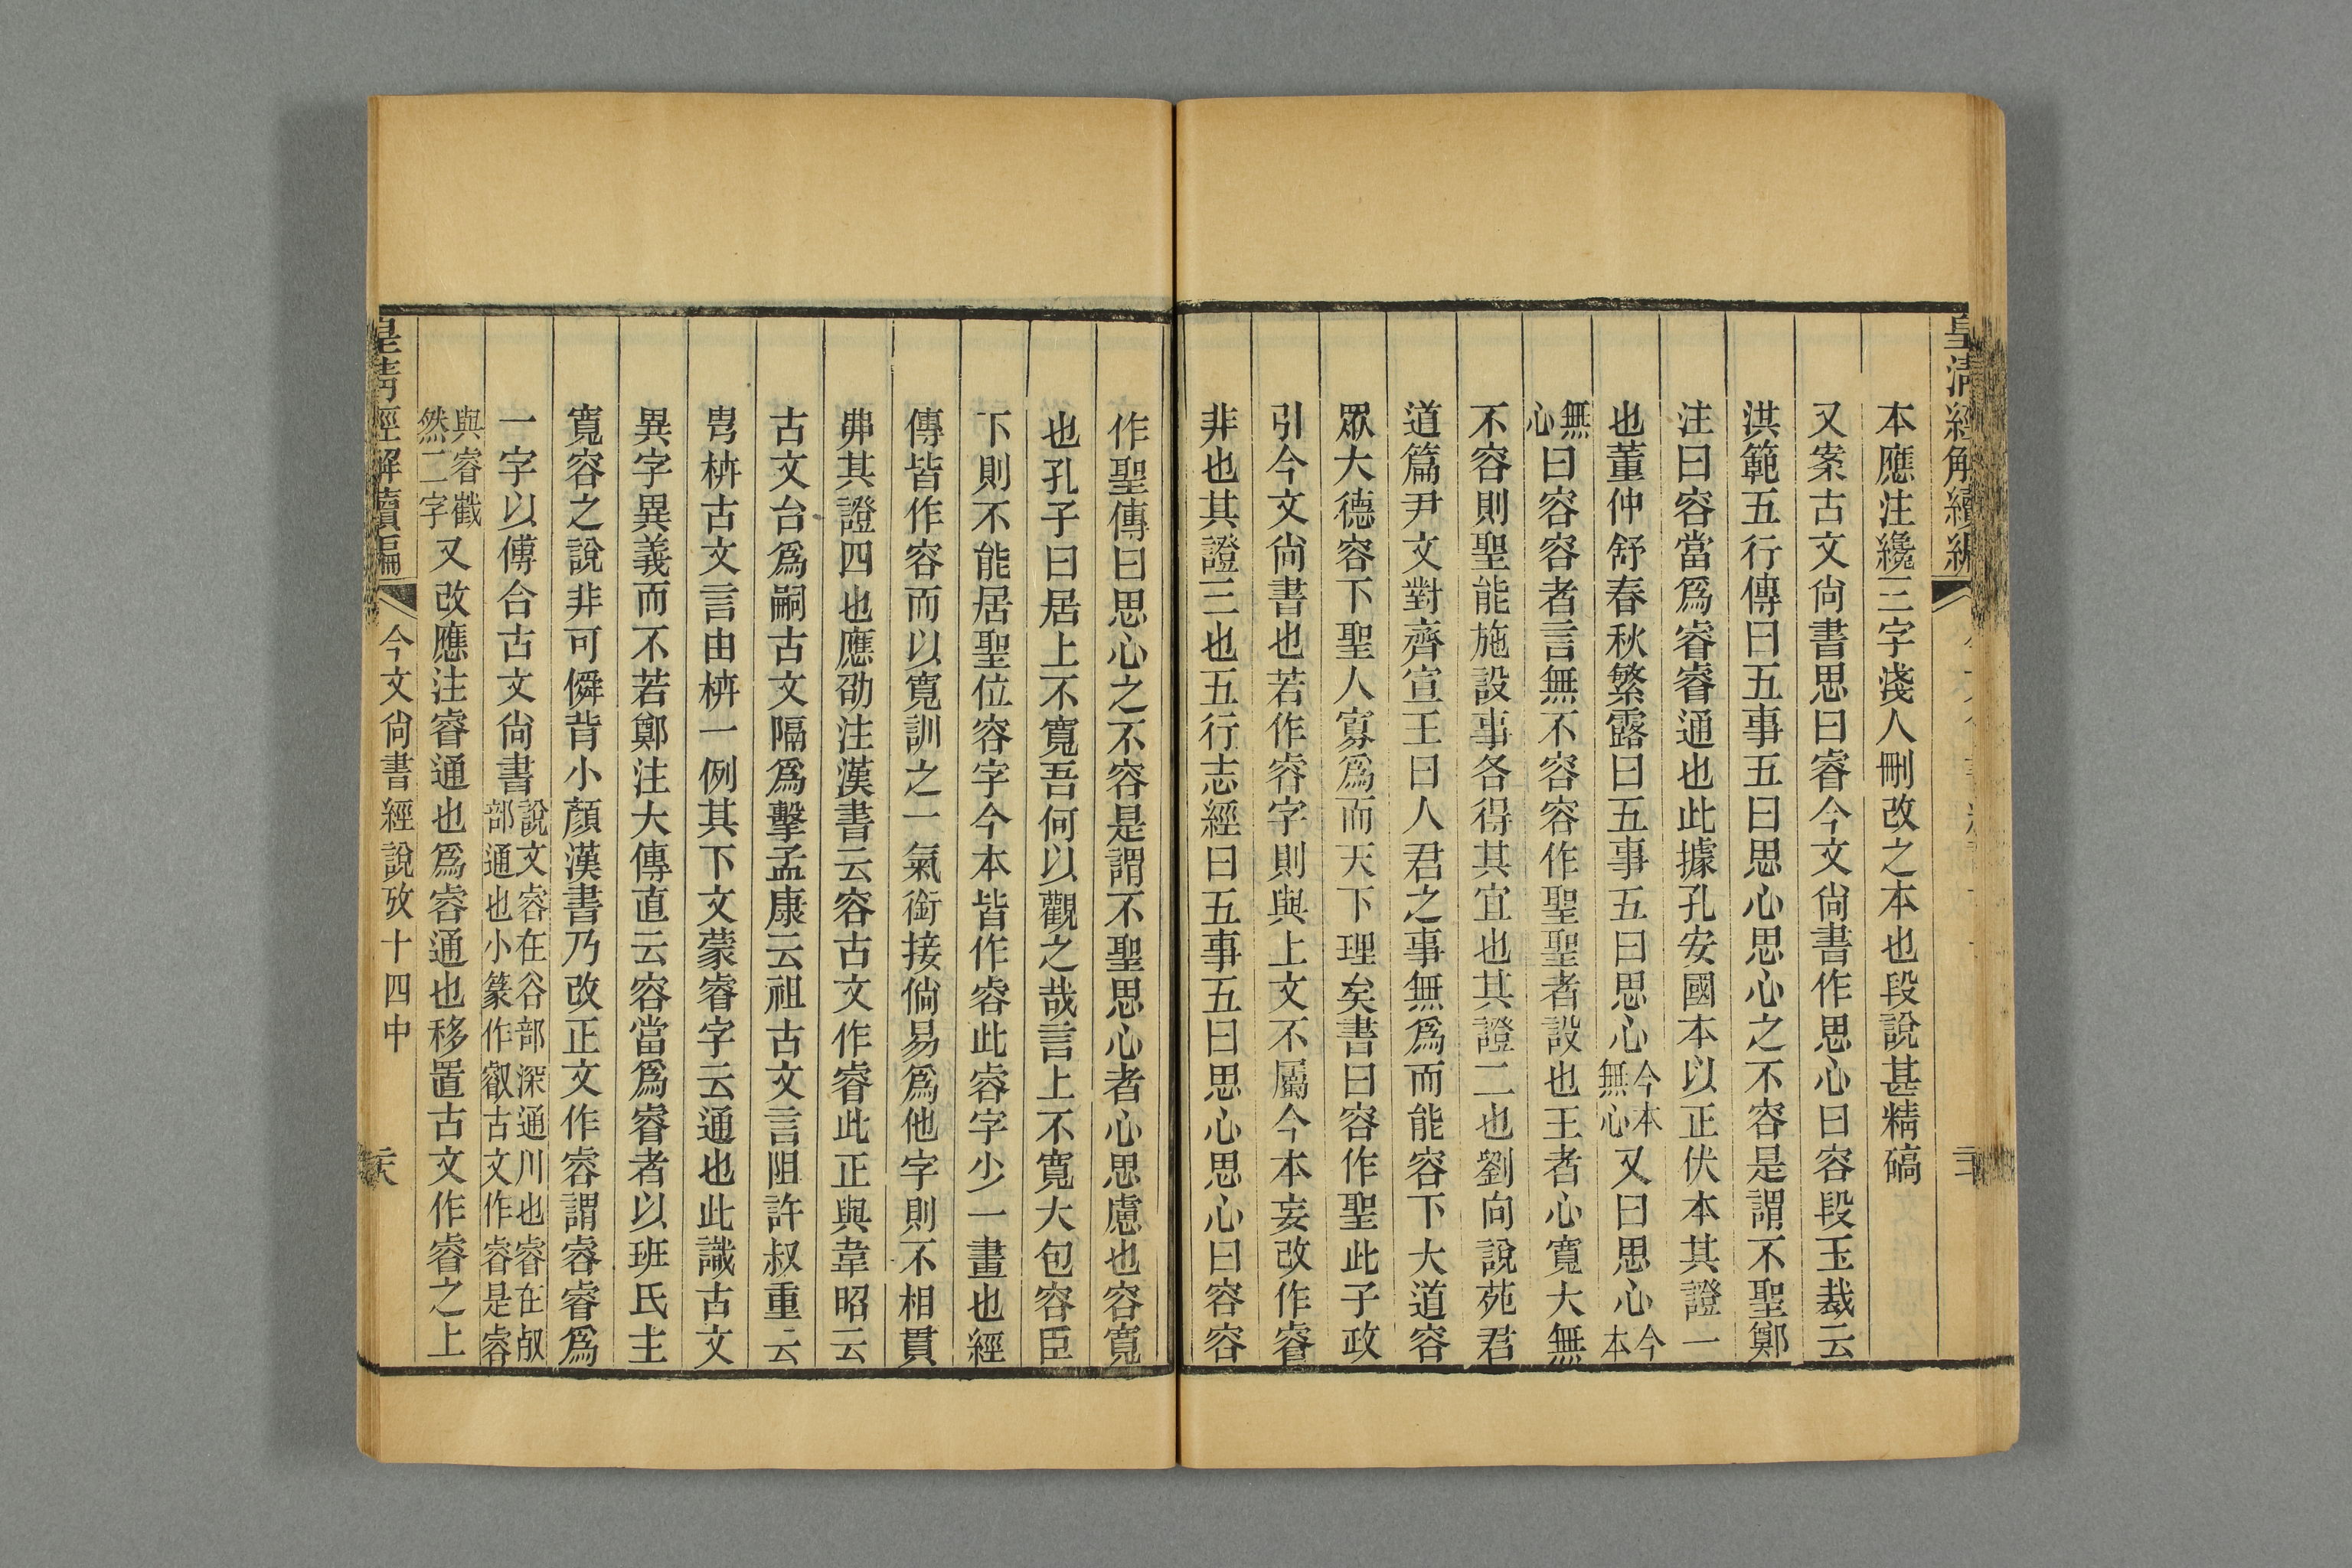 皇清經解續編
本應注纔三字淺人刪改之本也段說甚精碻
又案古文尙書思曰睿今文尙書作思心曰容段玉裁云
洪範五行傳曰五事五曰思心思心之不容是謂不聖鄭
注曰容當爲睿睿通也此據孔安國本以正伏本其證一
也董仲舒春秋繁露曰五事五曰思心今本無心又曰思心今本
無心曰容容者言無不容容作聖聖者設也王者心寬大無
不容則聖能施設事各得其宜也其證二也劉向說苑君
道篇尹文對齊宣王曰人君之事無爲而能容下大道容
眾大德容下聖人寡爲而天下理矣書曰容作聖此子政
引今文尙書也若作睿字則與上文不屬今本妄改作睿
非也其證三也五行志經曰五事五曰思心思心曰容容
作聖傳曰思心之不容是謂不聖思心者心思慮也容寬
也孔子曰居上不寬吾何以觀之哉言上不寬大包容臣
下則不能居聖位容字今本皆作㕡此㕡字少一畫也經
傳皆作容而以寬訓之一氣銜接倘易爲他字則不相貫
弗其證四也應劭注漢書云容古文作睿此正與韋昭云
古文台爲嗣古文隔爲擊孟康云祖古文言阻許叔重云
㽕枿古文言由枿一例其下文蒙睿字云通也此識古文
異字異義而不若鄭注大傳直云容當爲睿者以班氏主
寬容之說非可僢背小顏漢書乃改正文作㕡謂㕡睿爲
一字以傅合古文尙書說文㕡在谷部深通川也睿在㕡部通也小篆作叡古文作睿是㕡
與睿截然二字又改應注睿通也爲㕡通也移置古文作睿之上
皇清經解續編
今文尙書經說攷十四中